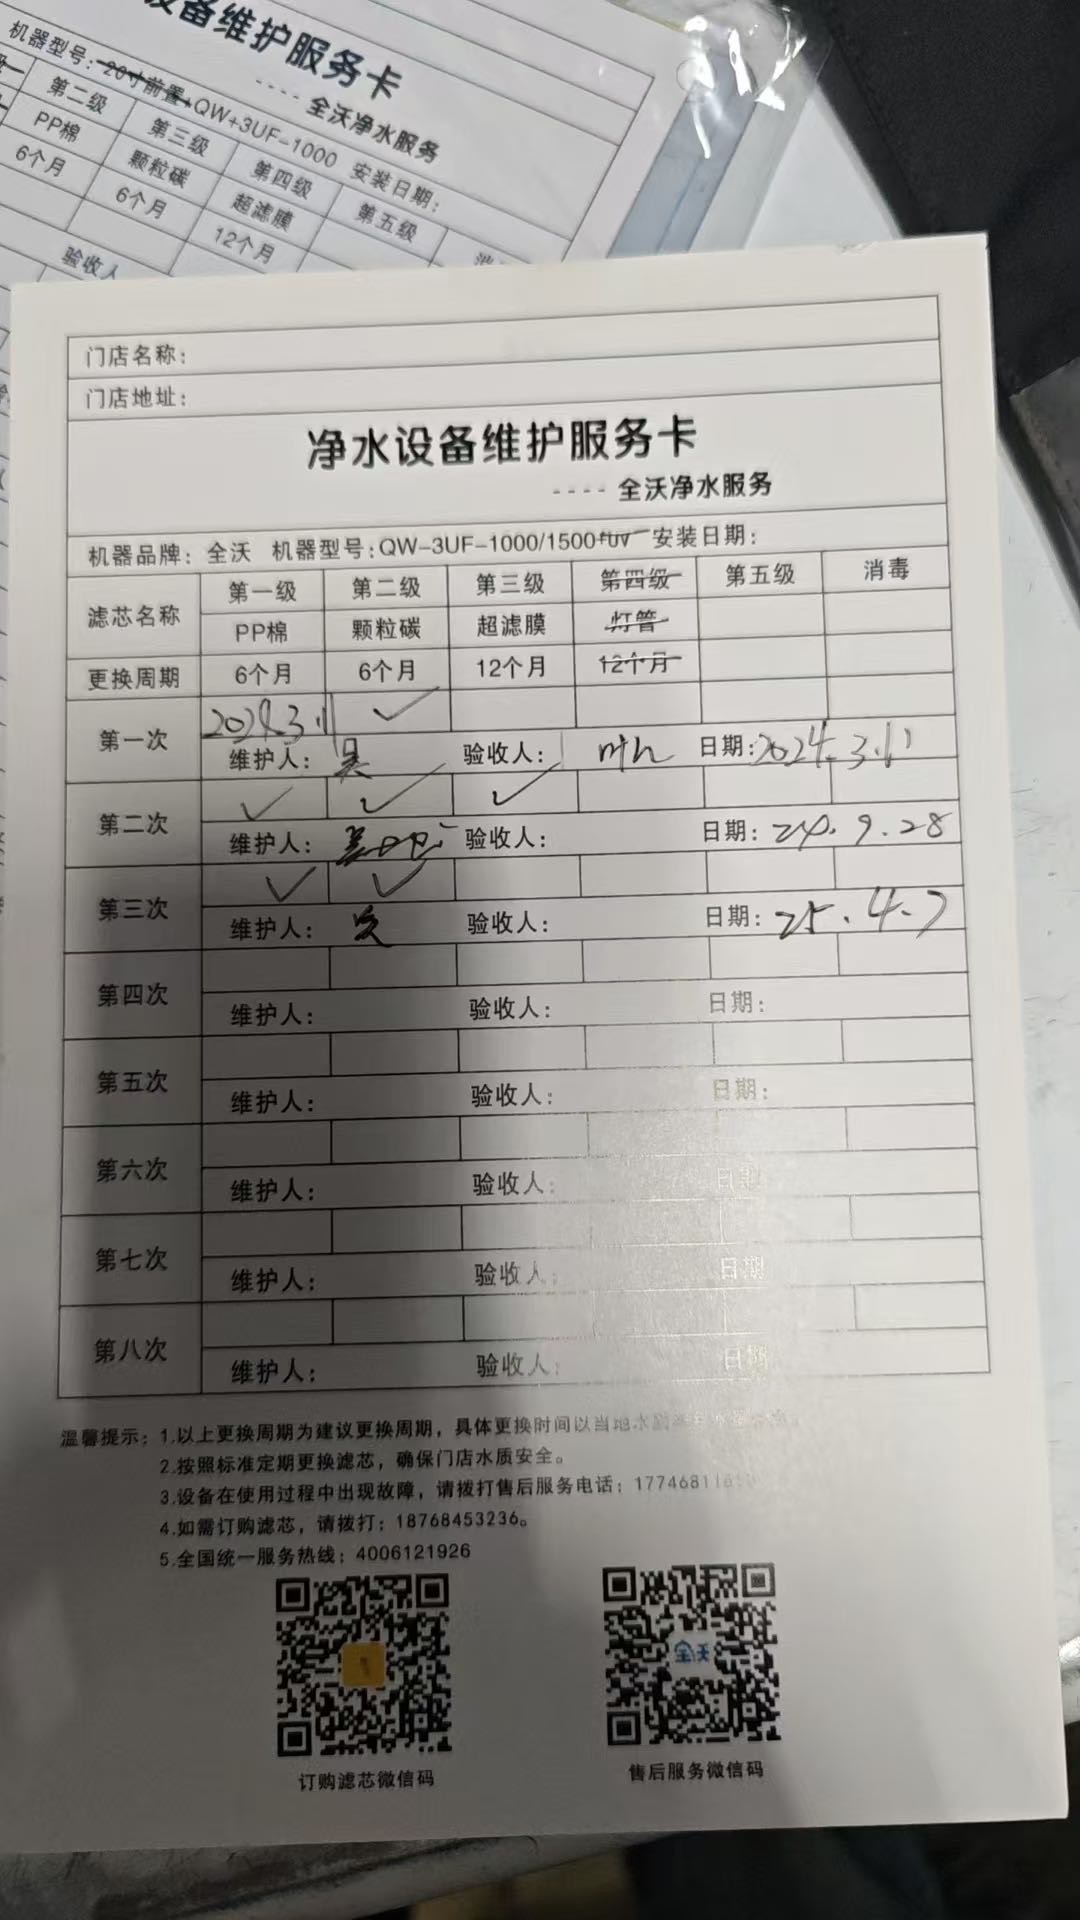 设备维护服务卡
---- 全沃净水服务
机器型号：20寸前置+QW+3UF-1000 安装日期：
第二级 第三级 第四级 第五级
PP棉 颗粒碳 超滤膜
6个月 6个月 12个月
验收人
门店名称：
门店地址：
净水设备维护服务卡
---- 全沃净水服务
机器品牌：全沃 机器型号：QW-3UF-1000/1500+uv 安装日期：
滤芯名称 第一级 第二级 第三级 第四级 第五级 消毒
PP棉 颗粒碳 超滤膜 灯管
更换周期 6个月 6个月 12个月 12个月
第一次 2024.3.11 ✓
维护人：吴 验收人： 日期：2024.3.11
第二次 ✓ ✓ ✓
维护人： 验收人： 日期：24.9.28
第三次 ✓ ✓
维护人： 验收人： 日期：25.4.7
第四次
维护人： 验收人： 日期：
第五次
维护人： 验收人： 日期：
第六次
维护人： 验收人： 日期
第七次
维护人： 验收人： 日期
第八次
维护人： 验收人： 日期
温馨提示：1.以上更换周期为建议更换周期，具体更换时间以当地水
2.按照标准定期更换滤芯，确保门店水质安全。
3.设备在使用过程中出现故障，请拨打售后服务电话：
4.如需订购滤芯，请拨打：18768453236。
5.全国统一服务热线：4006121926
全沃
订购滤芯微信码 售后服务微信码